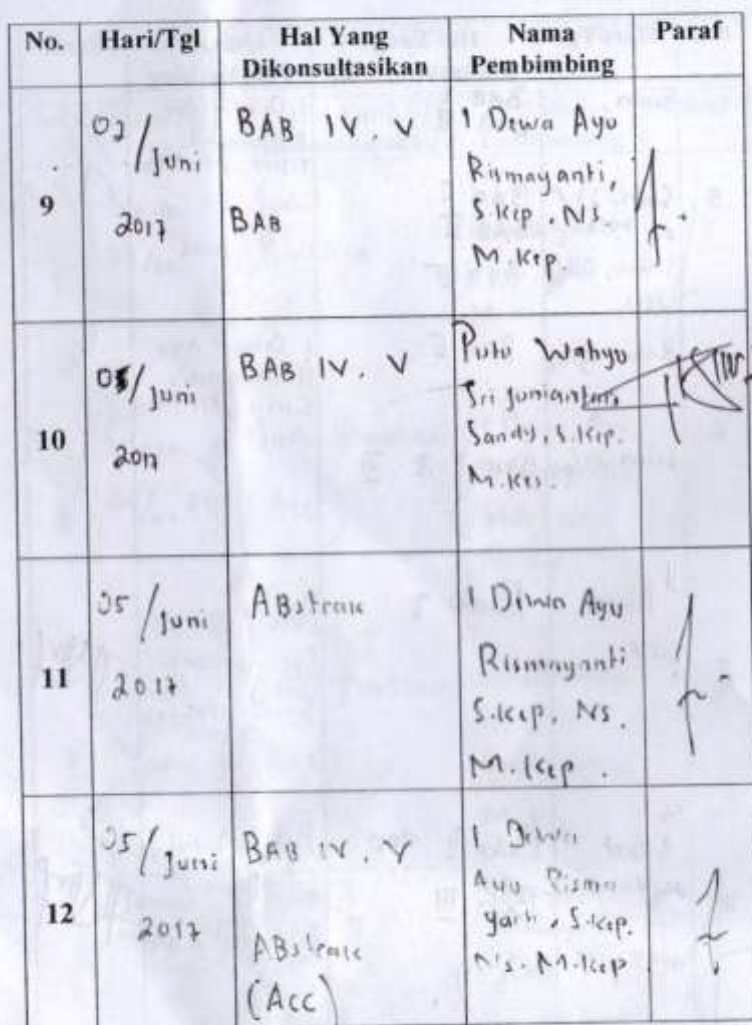 No. Hari/Tgl Hal Yang Dikonsultasikan Nama Pembimbing Paraf
9
/Juni
2017
BAB IV. V
BAB
I Dewa Ayu
Rismayanti,
S.Kep, NS.
M.Kep
10
/Juni
2017
BAB IV. V
Putu Wahyu
Sri Juniantari
Sandy, S.Kep.
M.Kes.
11
05/Juni
2017
ABstrak
I Dewa Ayu
Rismayanti
S.Kep, NS.
M.Kep.
12
05/Juni
2017
BAB IV. V
ABstrak
(Acc)
I Dewa
Ayu Risma
yanti, S.Kep.
Ns. M.Kep